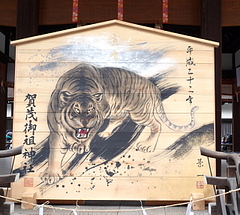 平成二十二年
賀茂御祖神社